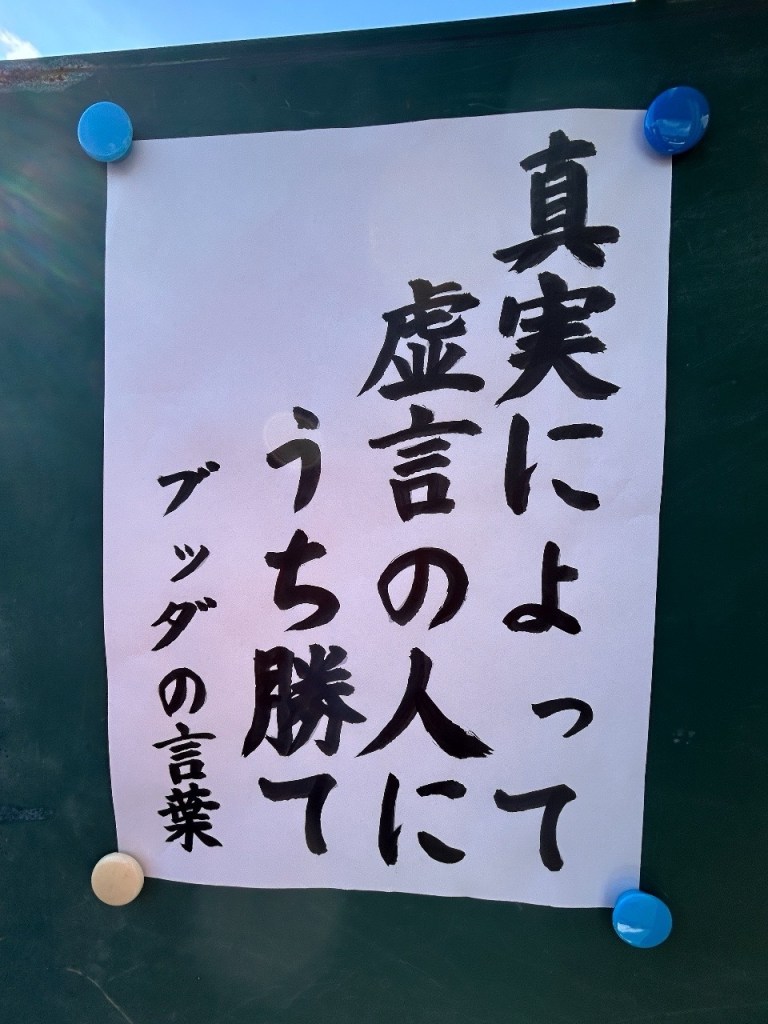 真実によって
虚言の人に
うち勝て
ブッダの言葉